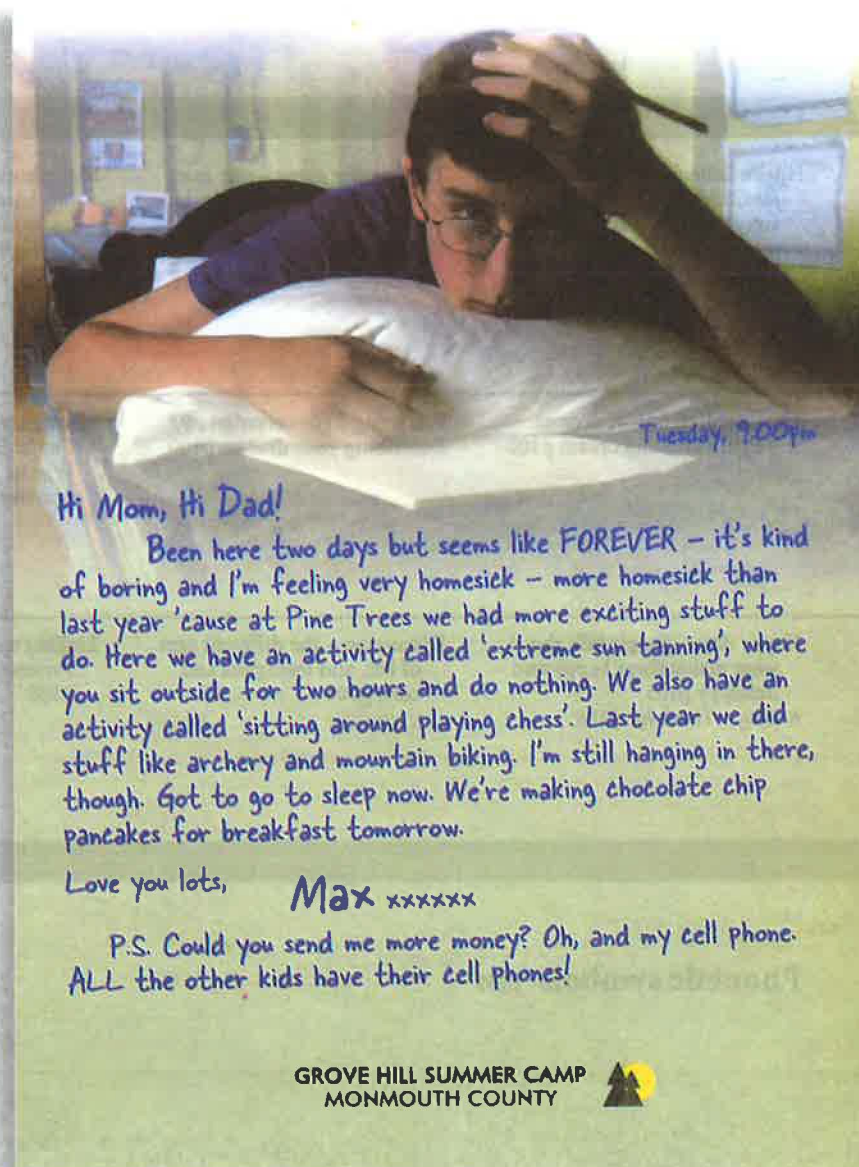 Tuesday, 9.00pm
Hi Mom, Hi Dad!
Been here two days but seems like FOREVER – it's kind
of boring and I'm feeling very homesick – more homesick than
last year 'cause at Pine Trees we had more exciting stuff to
do. Here we have an activity called 'extreme sun tanning', where
you sit outside for two hours and do nothing. We also have an
activity called 'sitting around playing chess'. Last year we did
stuff like archery and mountain biking. I'm still hanging in there,
though. Got to go to sleep now. We're making chocolate chip
pancakes for breakfast tomorrow.
Love you lots,
Max xxxxxx
P.S. Could you send me more money? Oh, and my cell phone.
ALL the other kids have their cell phones!
GROVE HILL SUMMER CAMP
MONMOUTH COUNTY